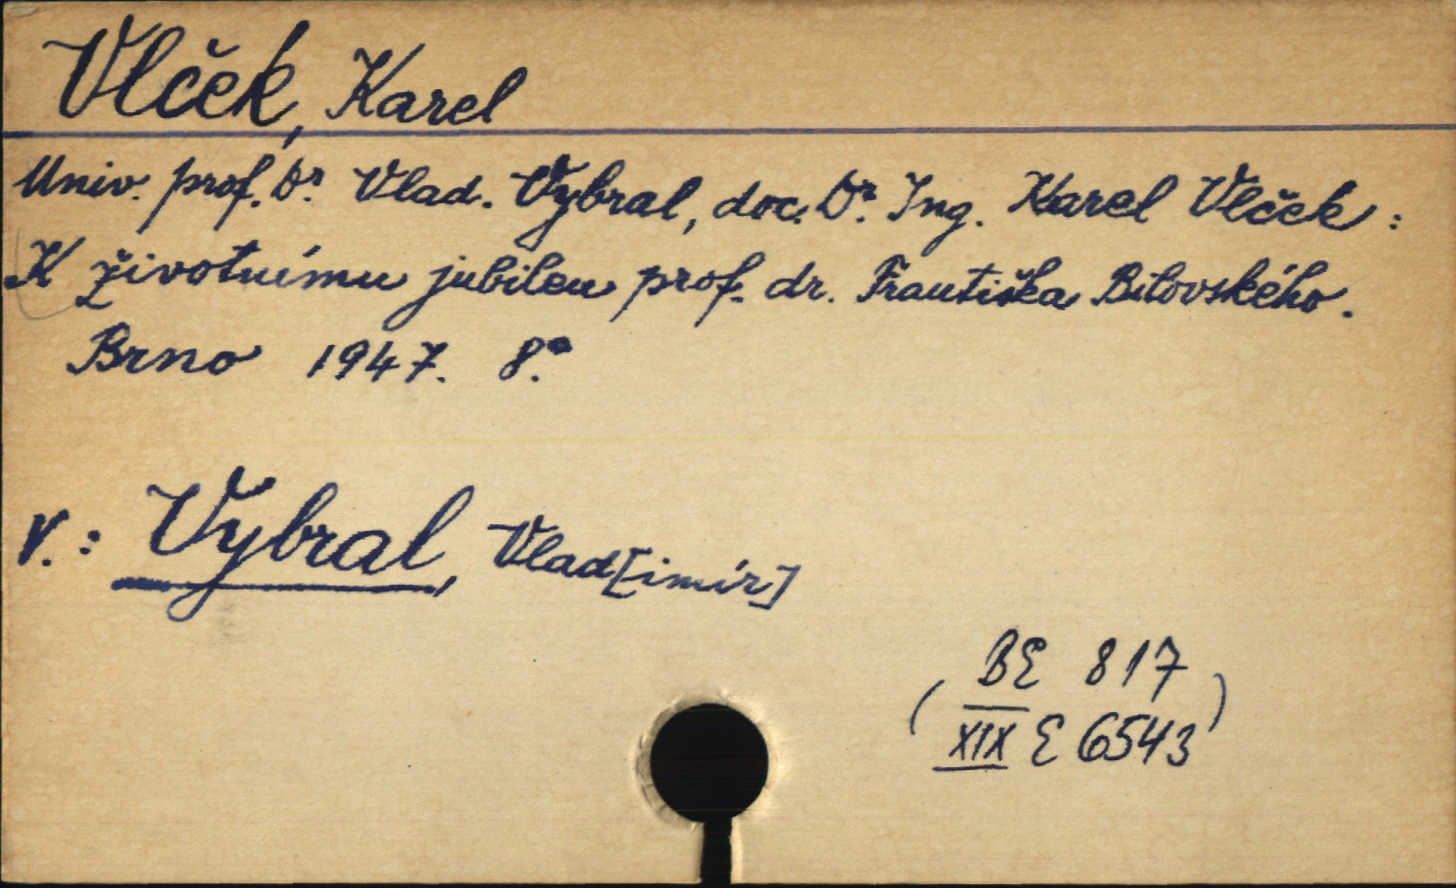 Vlček, Karel
Univ. prof. Dr. Vlad. Vybral, doc. Dr. Ing. Karel Vlček:
K životnímu jubileu prof. dr. Františka Bílovského.
Brno 1947. 8.°
V.: Vybral, Vlad[imír]
(BE 817
XIX E 6543)